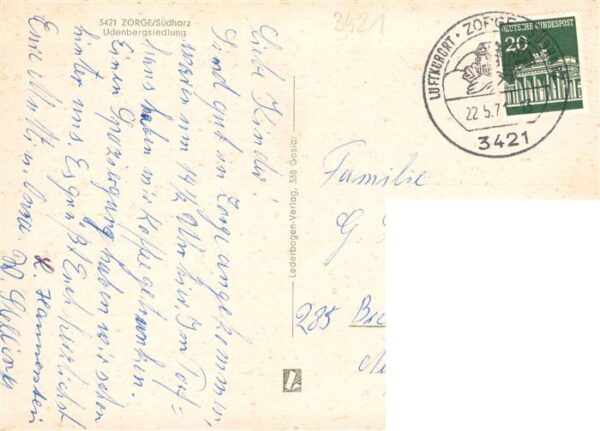 3421 ZORGE/Südharz
Udenbergsiedlung
3421
Liebe Kinder!
Sind gut in Zorge angekommen,
waren um 14½ Uhr hier. Im Torf=
haus haben wir Kaffee getrunken.
Einen Spaziergang haben wir schon
hinter uns. Es grüßt Euch herzlichst
Eure Mutti u. Oma.
Lederbogen-Verlag, 338 Goslar
Familie
G.
285 Bre
LUFTKURORT · ZORGE
22.5.7
3421
DEUTSCHE BUNDESPOST
20